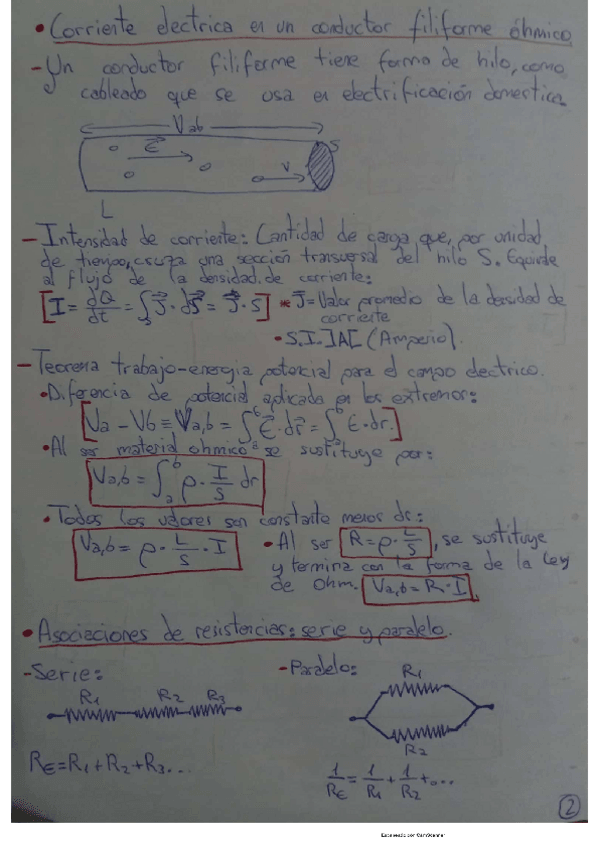 • Corriente electrica en un conductor filiforme óhmico
- Un conductor filiforme tiene forma de hilo, como
cableado que se usa en electrificación domestica.
Vab
E
S
V
L
- Intensidad de corriente: Cantidad de carga que, por unidad
de tiempo, cruza una sección transversal del hilo S. Equivale
al flujo de la densidad de corriente:
[I = dQ/dt = ∫s J⃗ · dS⃗ = J⃗ · S] * J̄ = Valor promedio de la densidad de
corriente
• S.I. [A] (Amperio).
- Teorema trabajo-energia potencial para el campo electrico.
• Diferencia de potencial aplicada en los extremos:
[Va - Vb ≡ Va,b = ∫a^b E⃗ · dr⃗ = ∫a^b E · dr.]
• Al ser material ohmico se sustituye por:
Va,b = ∫a^b ρ · I/S dr
• Todos los valores son constante menos dr:
Va,b = ρ · L/S · I
• Al ser R = ρ · L/S, se sustituye
y termina con la forma de la Ley
de Ohm. Va,b = R · I
• Asociaciones de resistencias: serie y paralelo.
- Serie:
R1 R2 R3
RE = R1 + R2 + R3...
- Paralelo:
R1
R2
1/RE = 1/R1 + 1/R2 + ...
2
Escaneado con CamScanner